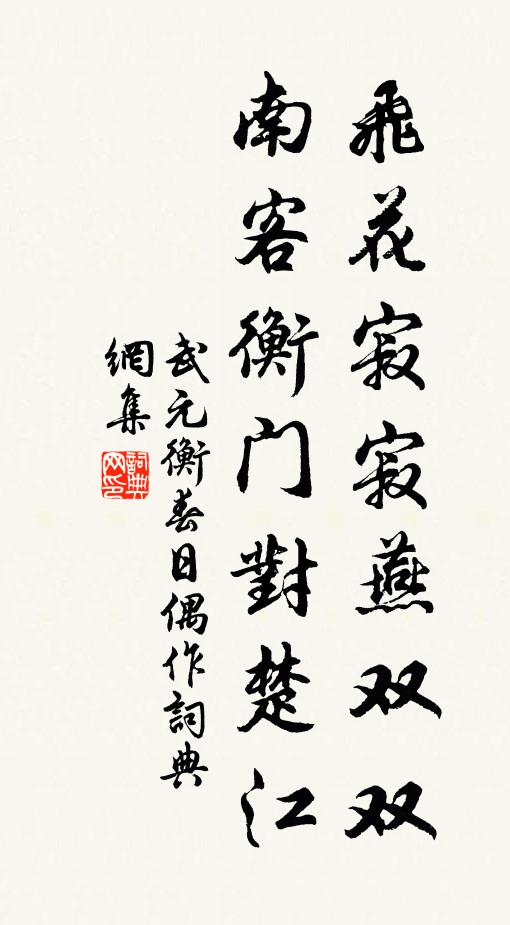 飛花寂寂燕双双
南客衡门對楚江
武元衡春日偶作詞典
網集
詞典网印